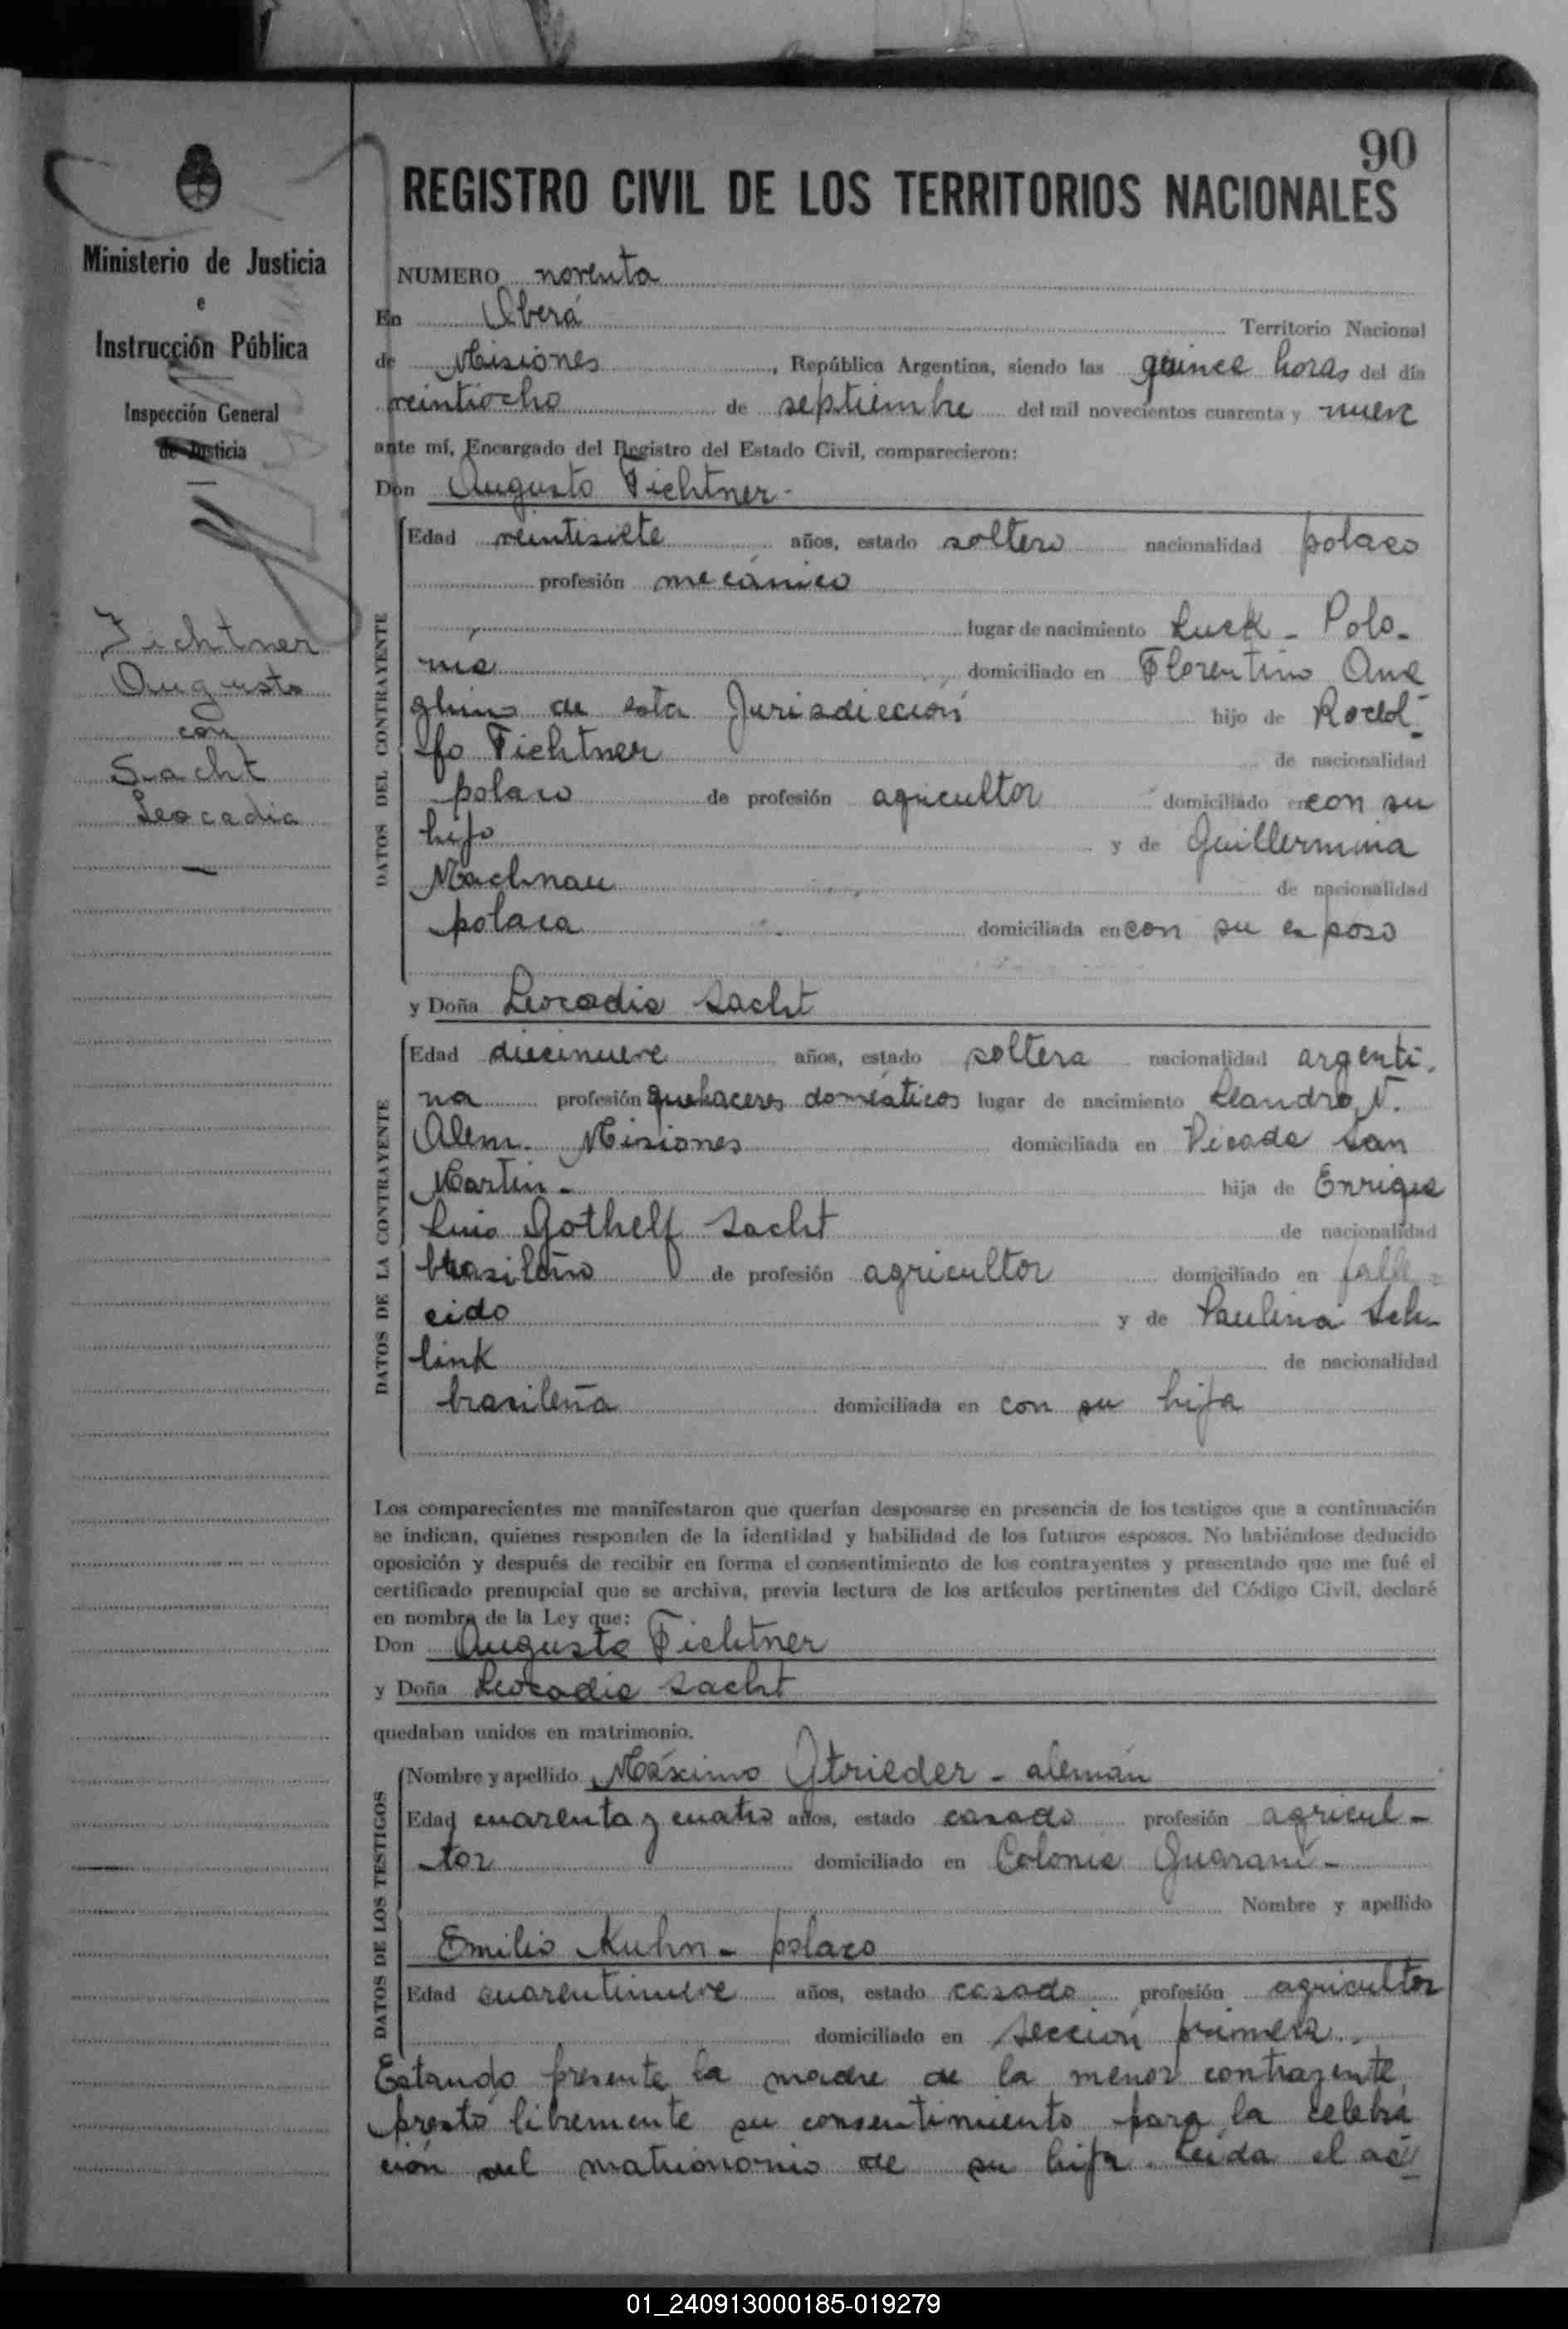 90
REGISTRO CIVIL DE LOS TERRITORIOS NACIONALES
Ministerio de Justicia
e
Instrucción Pública
Inspección General
de Justicia
Fichtner
Augusto
con
Sacht
Leocadia
NUMERO noventa
En Oberá Territorio Nacional
de Misiones, República Argentina, siendo las quince horas del día
veintiocho de septiembre del mil novecientos cuarenta y nueve
ante mí, Encargado del Registro del Estado Civil, comparecieron:
Don Augusto Fichtner-
DATOS DEL CONTRAYENTE
Edad veintisiete años, estado soltero nacionalidad polaco
profesión mecánico
lugar de nacimiento Luck - Polo-
nia domiciliado en Florentino Ame
ghino de esta Jurisdicción hijo de Rodol-
fo Fichtner de nacionalidad
polaco de profesión agricultor domiciliado en con su
hijo y de Guillermina
Machnau de nacionalidad
polaca domiciliada en con su esposo
y Doña Leocadia Sacht
DATOS DE LA CONTRAYENTE
Edad diecinueve años, estado soltera nacionalidad argenti-
na profesión quehaceres domésticos lugar de nacimiento Leandro N.
Alem. Misiones domiciliada en Picada San
Martin- hija de Enrique
Luis Gothelf Sacht de nacionalidad
brasileño de profesión agricultor domiciliado en falle-
cido y de Paulina Sch-
link de nacionalidad
brasileña domiciliada en con su hija
Los comparecientes me manifestaron que querían desposarse en presencia de los testigos que a continuación
se indican, quienes responden de la identidad y habilidad de los futuros esposos. No habiéndose deducido
oposición y después de recibir en forma el consentimiento de los contrayentes y presentado que me fué el
certificado prenupcial que se archiva, previa lectura de los artículos pertinentes del Código Civil, declaré
en nombre de la Ley que:
Don Augusto Fichtner
y Doña Leocadia Sacht
quedaban unidos en matrimonio.
DATOS DE LOS TESTIGOS
Nombre y apellido Máximo Strieder - alemán
Edad cuarenta y cuatro años, estado casado profesión agricul-
tor domiciliado en Colonia Guaraní-
Nombre y apellido
Emilio Kuhn - polaco
Edad cuarentinueve años, estado casado profesión agricultor
domiciliado en Sección primera.
Estando presente la madre de la menor contrayente,
prestó libremente su consentimiento para la celebra
ción del matrimonio de su hija. Leída el ac
01_240913000185-019279